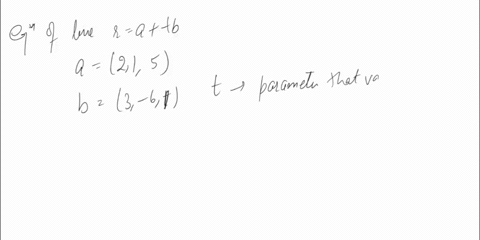 Eqn of line r=a+tb
a = (2,1, 5)
b = (3,-6,1) t → parameter that va